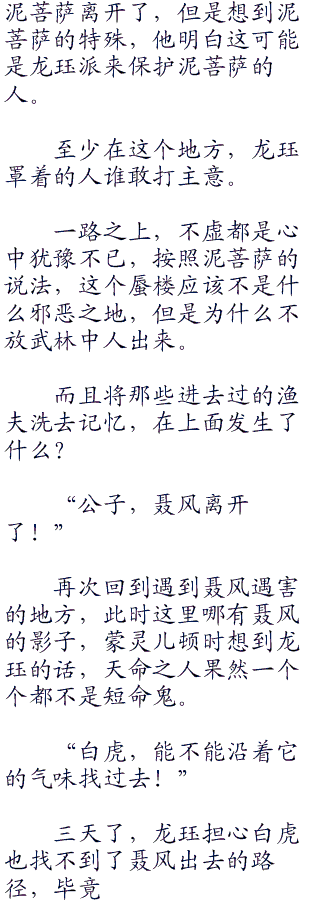 泥菩萨离开了，但是想到泥
菩萨的特殊，他明白这可能
是龙珏派来保护泥菩萨的
人。
　　至少在这个地方，龙珏
罩着的人谁敢打主意。
　　一路之上，不虚都是心
中犹豫不已，按照泥菩萨的
说法，这个蜃楼应该不是什
么邪恶之地，但是为什么不
放武林中人出来。
　　而且将那些进去过的渔
夫洗去记忆，在上面发生了
什么？
　　“公子，聂风离开
了！”
　　再次回到遇到聂风遇害
的地方，此时这里哪有聂风
的影子，蒙灵儿顿时想到龙
珏的话，天命之人果然一个
个都不是短命鬼。
　　“白虎，能不能沿着它
的气味找过去！”
　　三天了，龙珏担心白虎
也找不到了聂风出去的路
径，毕竟